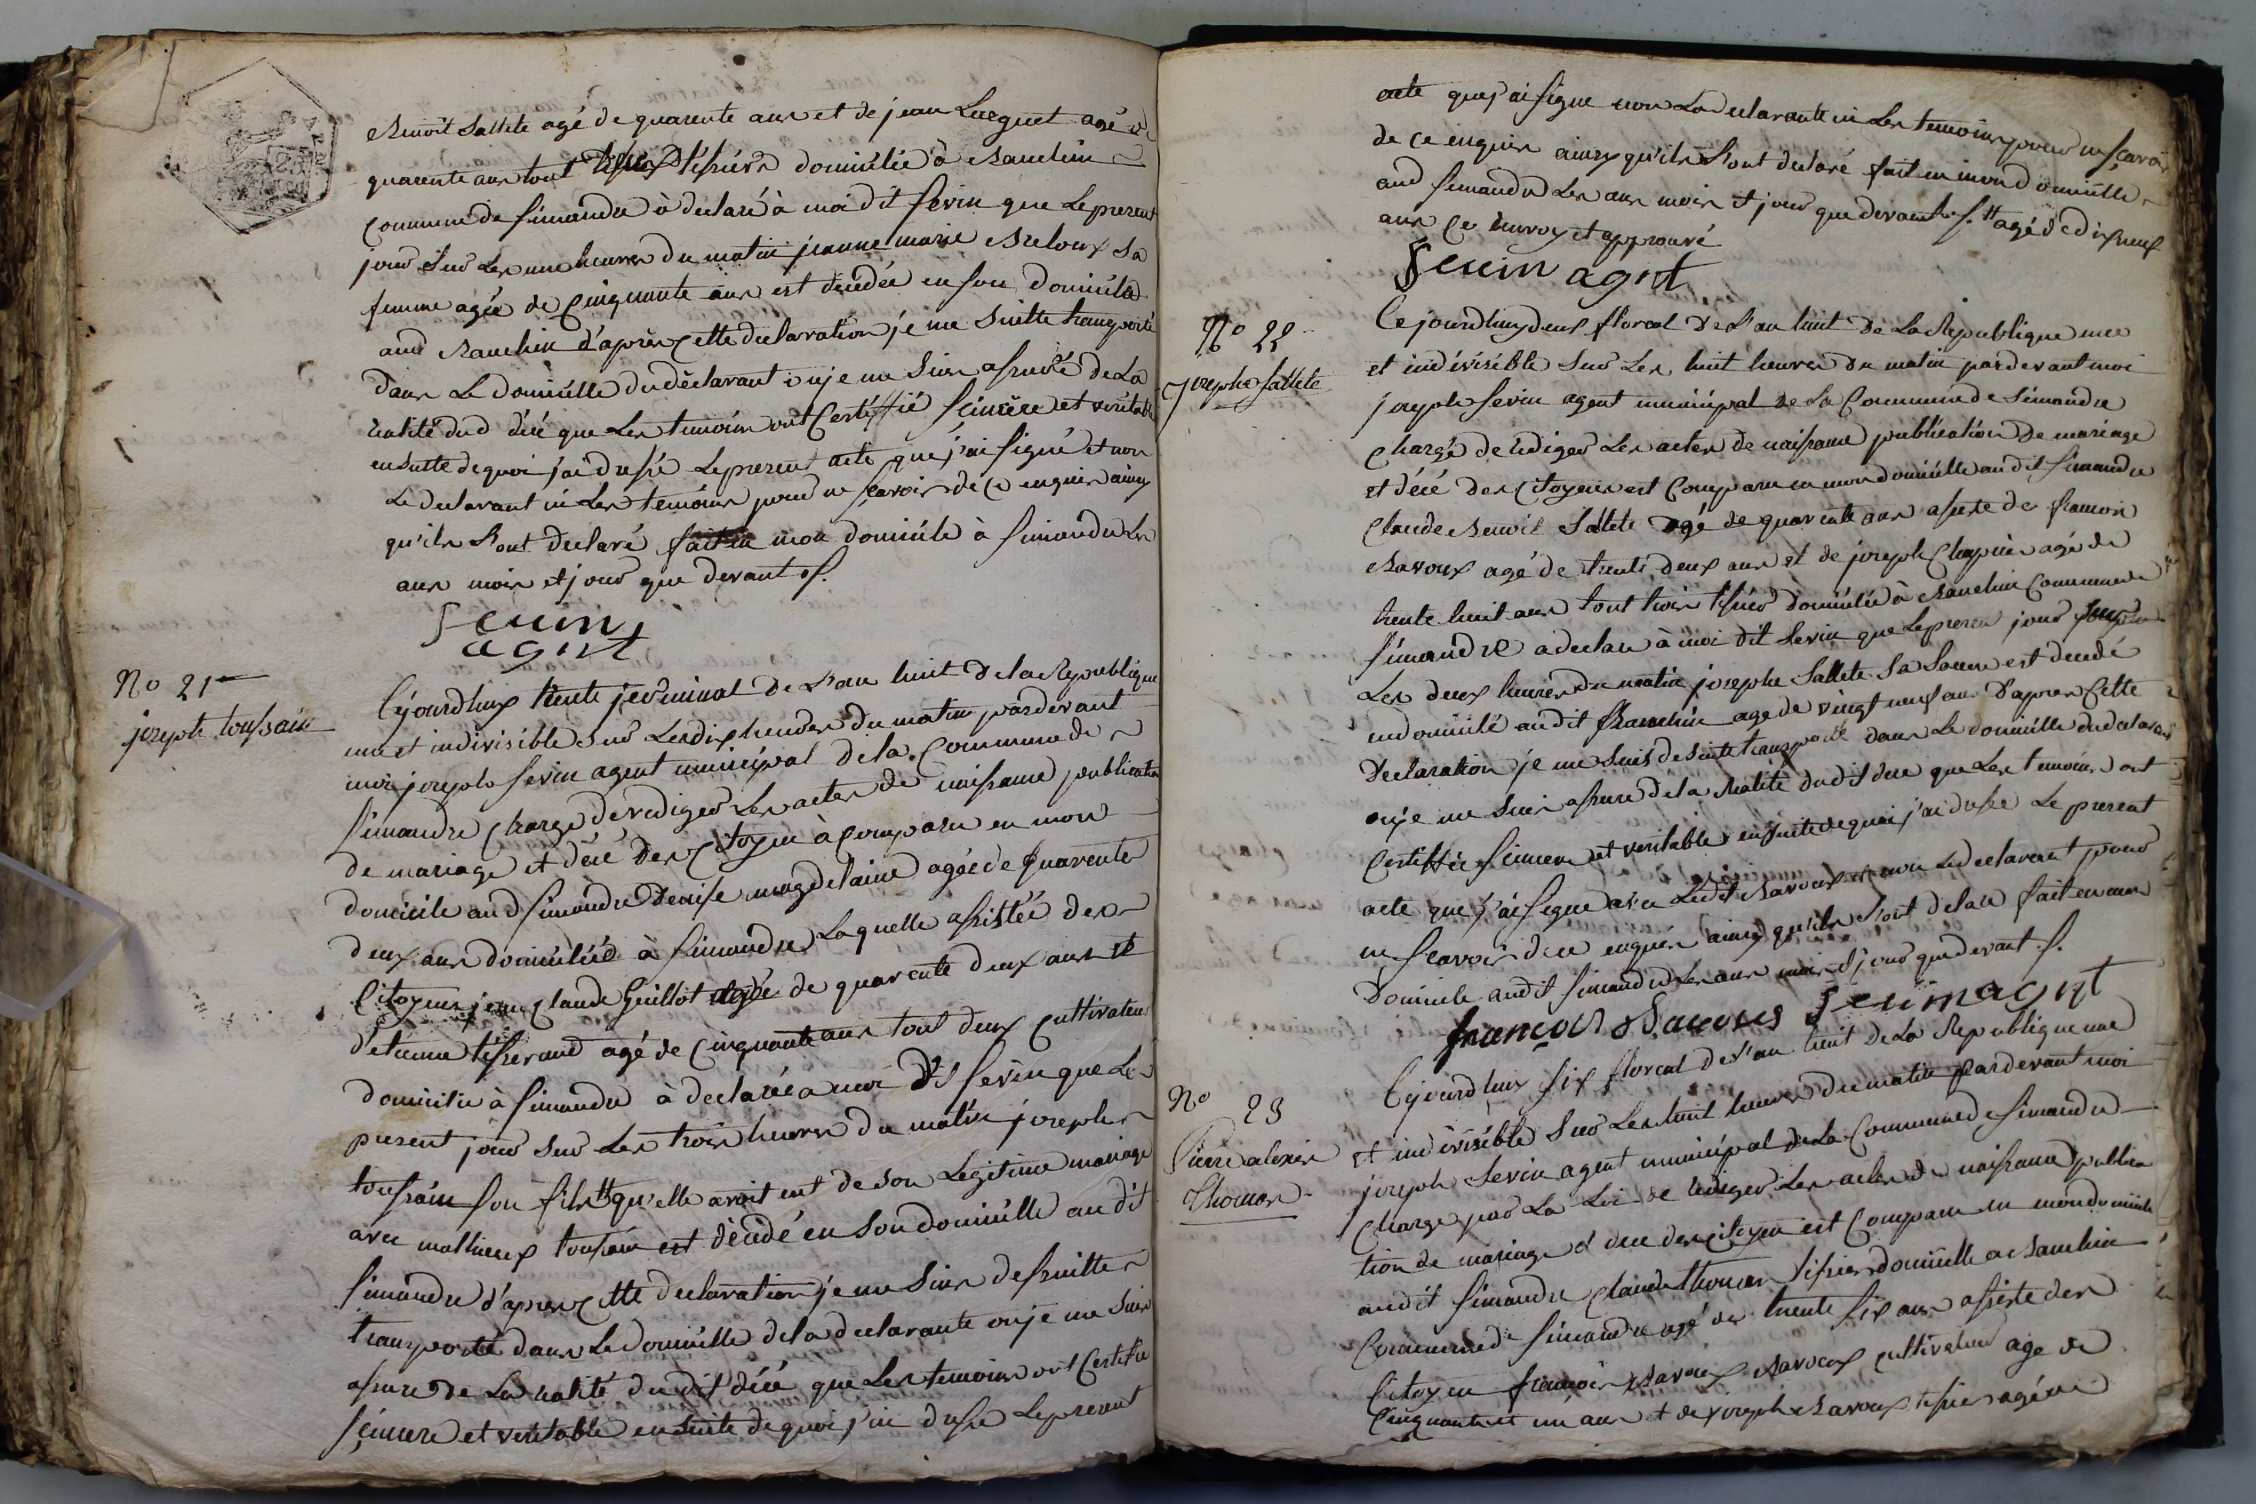 Benoit Sallete agé de quarente ans et de jean Luequet agé de
quarente ans tout deux tissiers domicilié à Banchin
commune de simandre à declaré à moi dit sevin que le present
jour sur les une heures du matin jeanne marie Breloux sa
femme agée de cinquante ans est decedée en son domicile
aud Banchin d'après cette declaration je me suitte transporté
dans le domicille du déclarant ou je me suis assuré de la
realité dud décé que les temoins ont certiffié scincère et veritable
ensuite de quoi j'ai dressé le present acte que j'ai signé et non
le declarant ni les temoins pour ne scavoir de ce enquis ainsy
qu'ils l'ont declaré fait en mon domicile à simandre les
ans mois et jour que devant s.
Sevin
agent
No 21
joseph toussain
Cejourdhuy trente jerminal de l'an huit de la Republique
une et indivisible sur les dix heures du matin pardevant
moi joseph sevin agent municipal de la Commune de
simandre chargé de rediger les actes de naissance publication
de mariage et décé des citoyen à comparu en mon
domicile aud simandre Denise magdelaine agée de quarente
deux ans domiciliée à simandre laquelle assistée des
Citoyens jean claude Guillot agé de quarente deux ans et
d'etienne tisserand agé de cinquante ans tout deux cultivateur
domicilié à simandre à declarée a moi dit sevin que le
present jour sur les trois heures du matin joseph
toussain son fils qu'elle avoit eut de son legitime mariage
avec mathieux toussain est décédé en son domicille au dit
simandre d'apres cette declaration je me suis dessuitte
transporté dans le domicille de la declarante ou je me suis
assuré de la realité du dit décé que les temoins ont certifié
scincere et veritable ensuite de quoi j'ai dressé le present
acte que j'ai signé non la declarante ni les temoins pour ne scavoir
de ce enquis ainsy qu'ils l'ont declaré fait en mon domicille
aud simandre les ans mois et jour que devant s. agé de dix neuf
ans ce renvoy et approuvé
Sevin agent
No 22
josephe Sallete
Cejourdhuy deux floreal de l'an huit de la Republique une
et indivisible sur les huit heures du matin pardevant moi
joseph sevin agent municipal de la Commune de simandre
chargé de rediger les actes de naissance publication de mariage
et décé des citoyens est comparu en mon domicille audit simandre
claude Benoit Sallete agé de quarente ans assiste de francois
Bavoux agé de trente deux ans et de joseph Chapuis agé de
trente huit ans tout trois tissier domicilié à Banchin Commune de
simandre a declare à moi dit sevin que le present jour sur
les deux heures du matin josephe Sallete sa soeur est decedé
en domicilé audit Banchin agé de vingt neuf ans d'apres cette
declaration je me suis desuite transporté dans le domicille du declarant
ou je me suis assuré de la realité dudit decé que les temoins ont
certiffié scincere et veritable ensuite de quoi j'ai dressé le present
acte que j'ai signé avec ledit Bavoux et non le declarent pour
ne scavoir de ce enquis ainsy qu'ils l'ont declaré fait en mon
Domicile audit simandre les ans mois et jour que devant s.
françois Bavoux Sevin agent
No 23
Pierre alexis
Thomas
Cejourdhuy six floreal de l'an huit de la Republique une
et indivisible sur les huit heures du matin pardevant moi
joseph sevin agent municipal de la Commune de simandre
chargé par la loi de rediger les actes de naissance publica
tion de mariage et decé des citoyen est comparu en mon domicile
audit simandre claude thomas tissier domicille a Banchin
Commune de simandre agé de trente six ans assiste des
Citoyen francois Bavoux Bavoux cultivateur agé de
cinquante et un ans et de joseph Bavoux tissier agé de